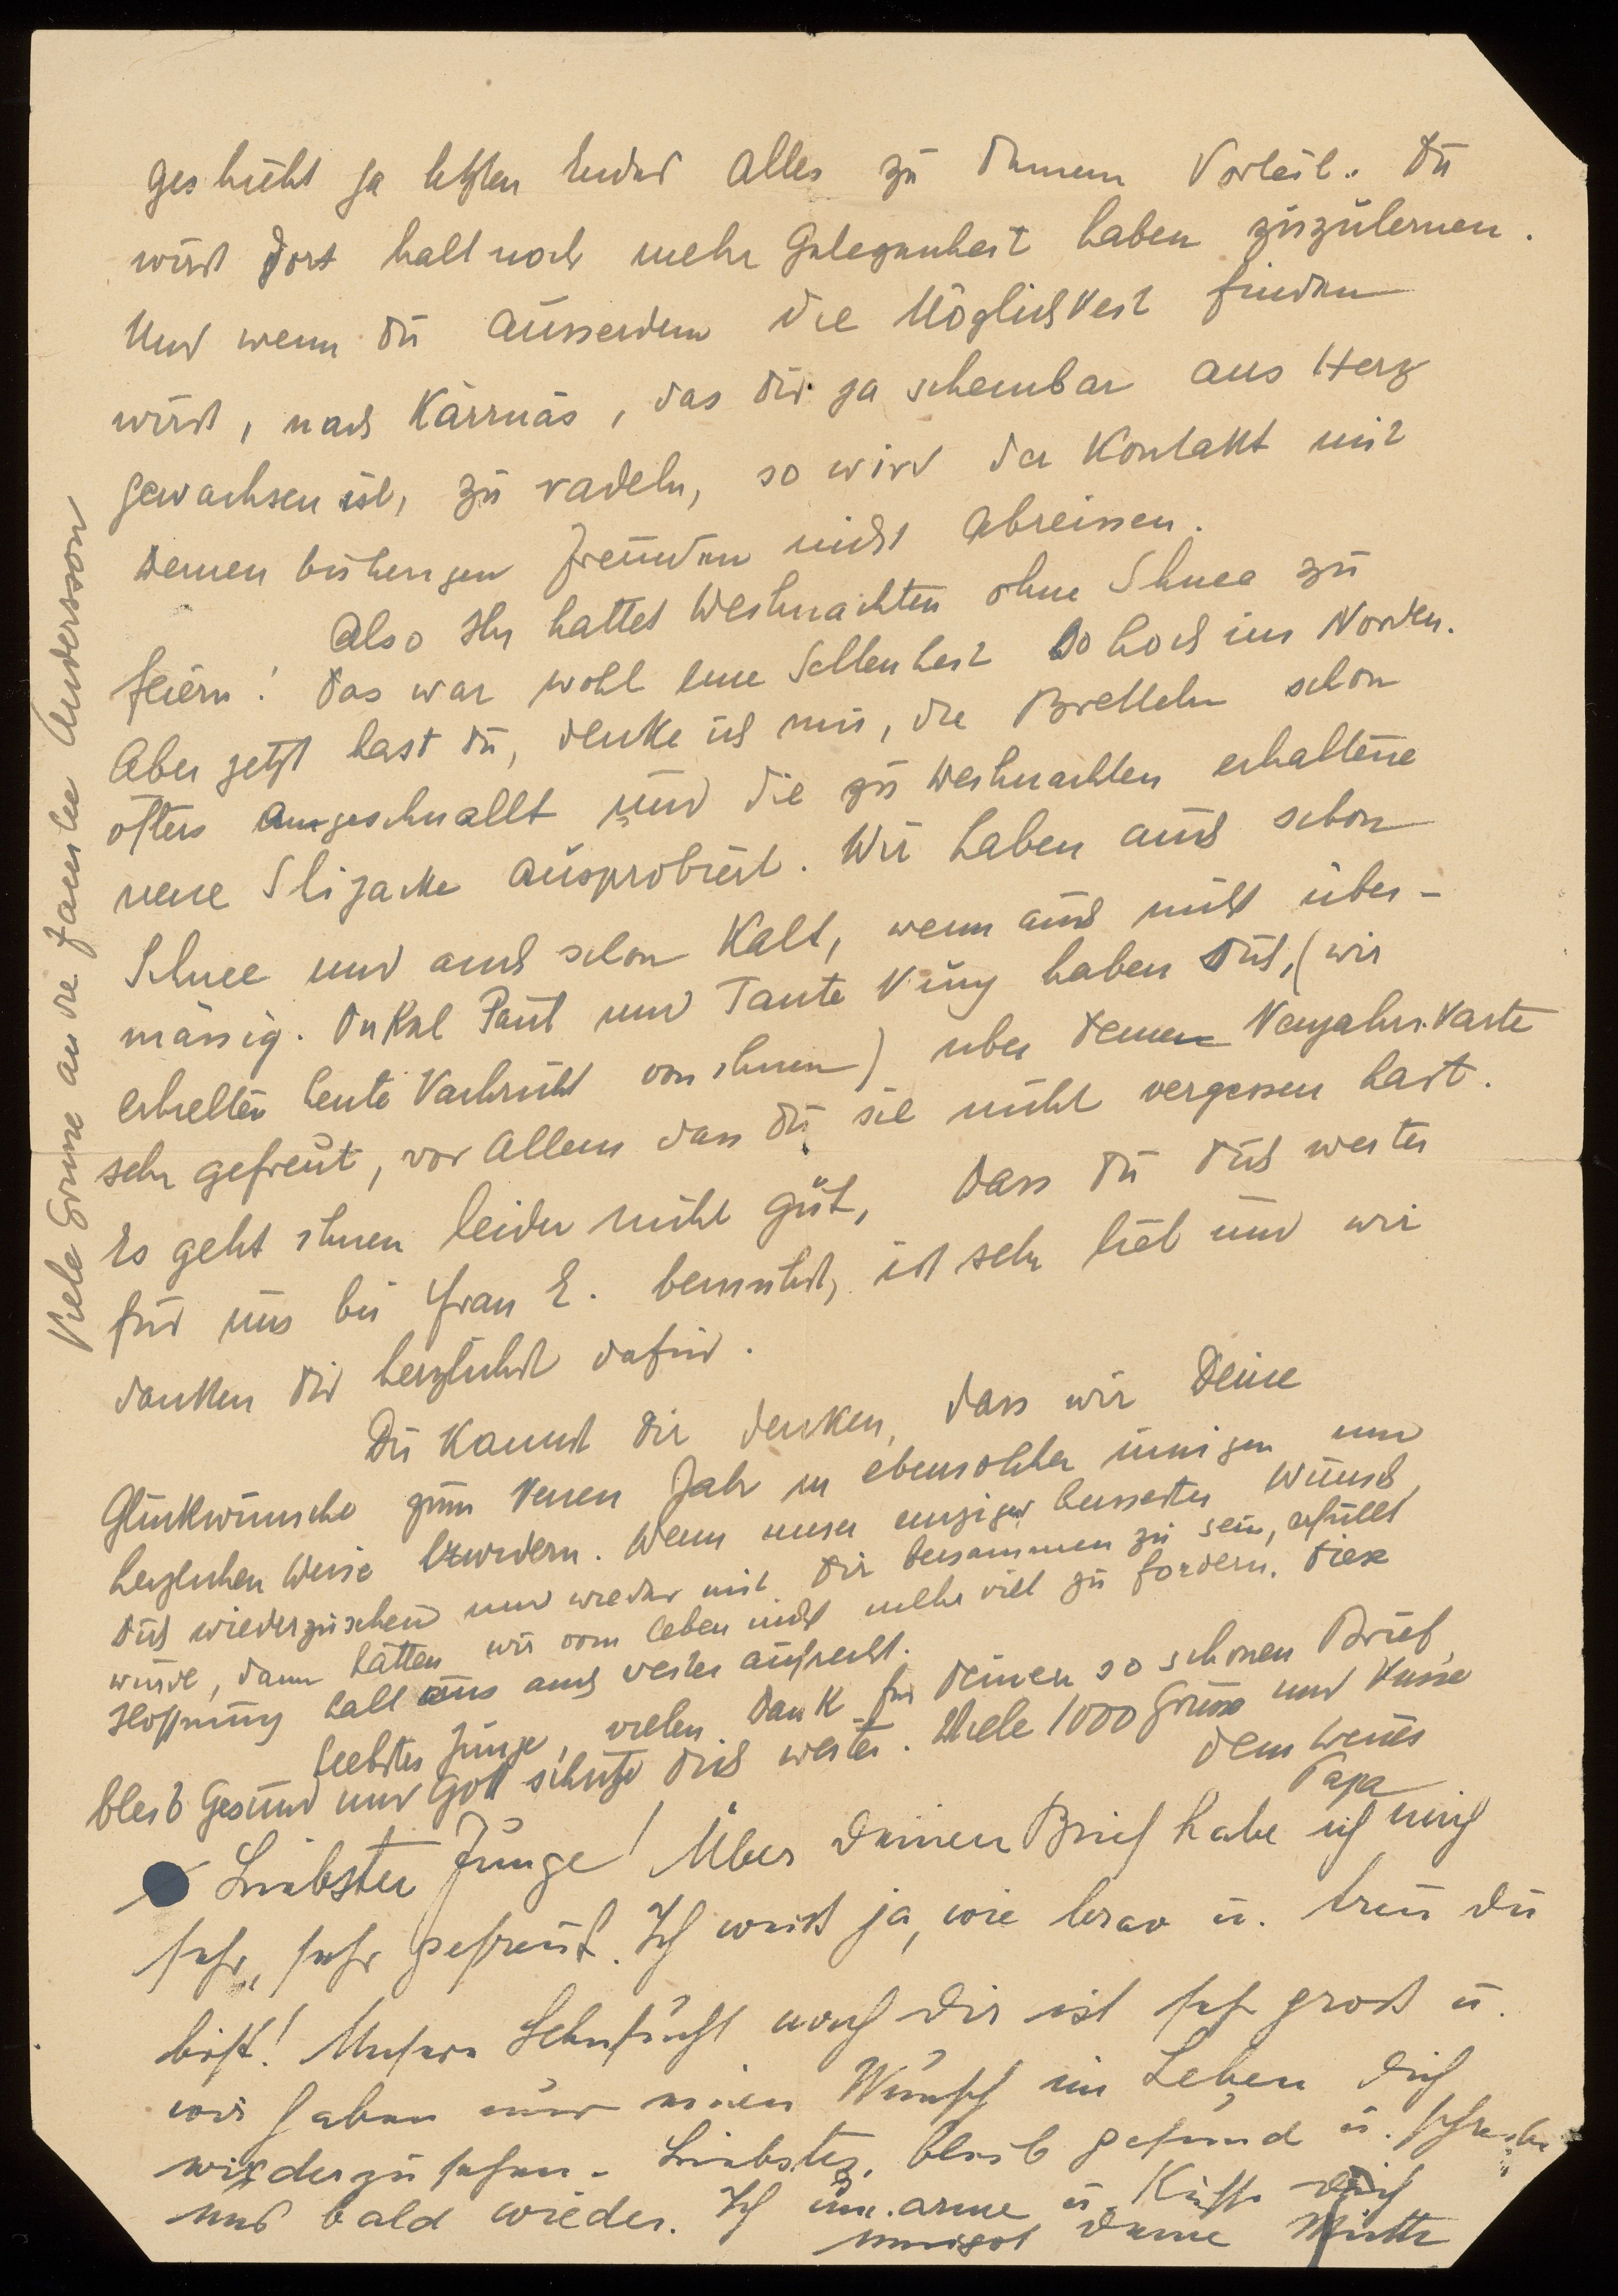 geschieht ja letzten Endes alles zu Deinem Vorteil. Du
wirst dort halt noch mehr Gelegenheit haben zuzulernen.
Und wenn Du ausserdem die Möglichkeit finden
wirst, nach Kärrnäs, das Dir ja scheinbar ans Herz
gewachsen ist, zu radeln, so wird der Kontakt mit
Deinen bisherigen Freunden nicht abreissen.
Also Ihr hattet Weihnachten ohne Schnee zu
feiern! Das war wohl eine Seltenheit so hoch im Norden.
Aber jetzt hast Du, denke ich mir, die Bretteln schon
öfters angeschnallt und die zu Weihnachten erhaltene
neue Skijacke ausprobiert. Wir haben auch schon
Schnee und auch schon Kalt, wenn auch nicht über-
mässig. Onkel Paul und Tante Nuny haben sich, (wir
erhielten heute Nachricht von ihnen) über Deine Neujahrskarte
sehr gefreut, vor Allem dass Du sie nicht vergessen hast.
Es geht ihnen leider nicht gut, Dass Du Dich weiter
für uns bei Frau E. bemühst, ist sehr lieb und wir
danken Dir herzlichst dafür.
Du kannst Dir denken, dass wir Deine
Glückwünsche zum Neuen Jahr in ebensolcher inniger und
herzlichen Weise erwidern. Wenn unser einziger heissester Wunsch,
Dich wiederzusehen und wieder mit Dir beisammen zu sein, erfüllt
würde, dann hätten wir vom Leben nicht mehr viel zu fordern. Diese
Hoffnung hält uns auch weiter aufrecht.
Liebster Junge, vielen Dank für Deinen so schönen Brief,
bleib gesund und Gott schütze Dich weiter. Viele 1000 Grüsse und Küsse
Dein treuer
Papa
Liebster Junge! Über Deinen Brief habe ich mich
sehr, sehr gefreut. Ich weiß ja, wie brav u. treu Du
bist! Unsere Sehnsucht nach Dir ist sehr groß u.
wir haben nur einen Wunsch im Leben Dich
wiederzusehen. Liebster, bleib gesund u. schreibe
uns bald wieder. Ich umarme u. Küsse Dich
innigst Deine Mutti
Viele Grüsse an die Familie Andersson